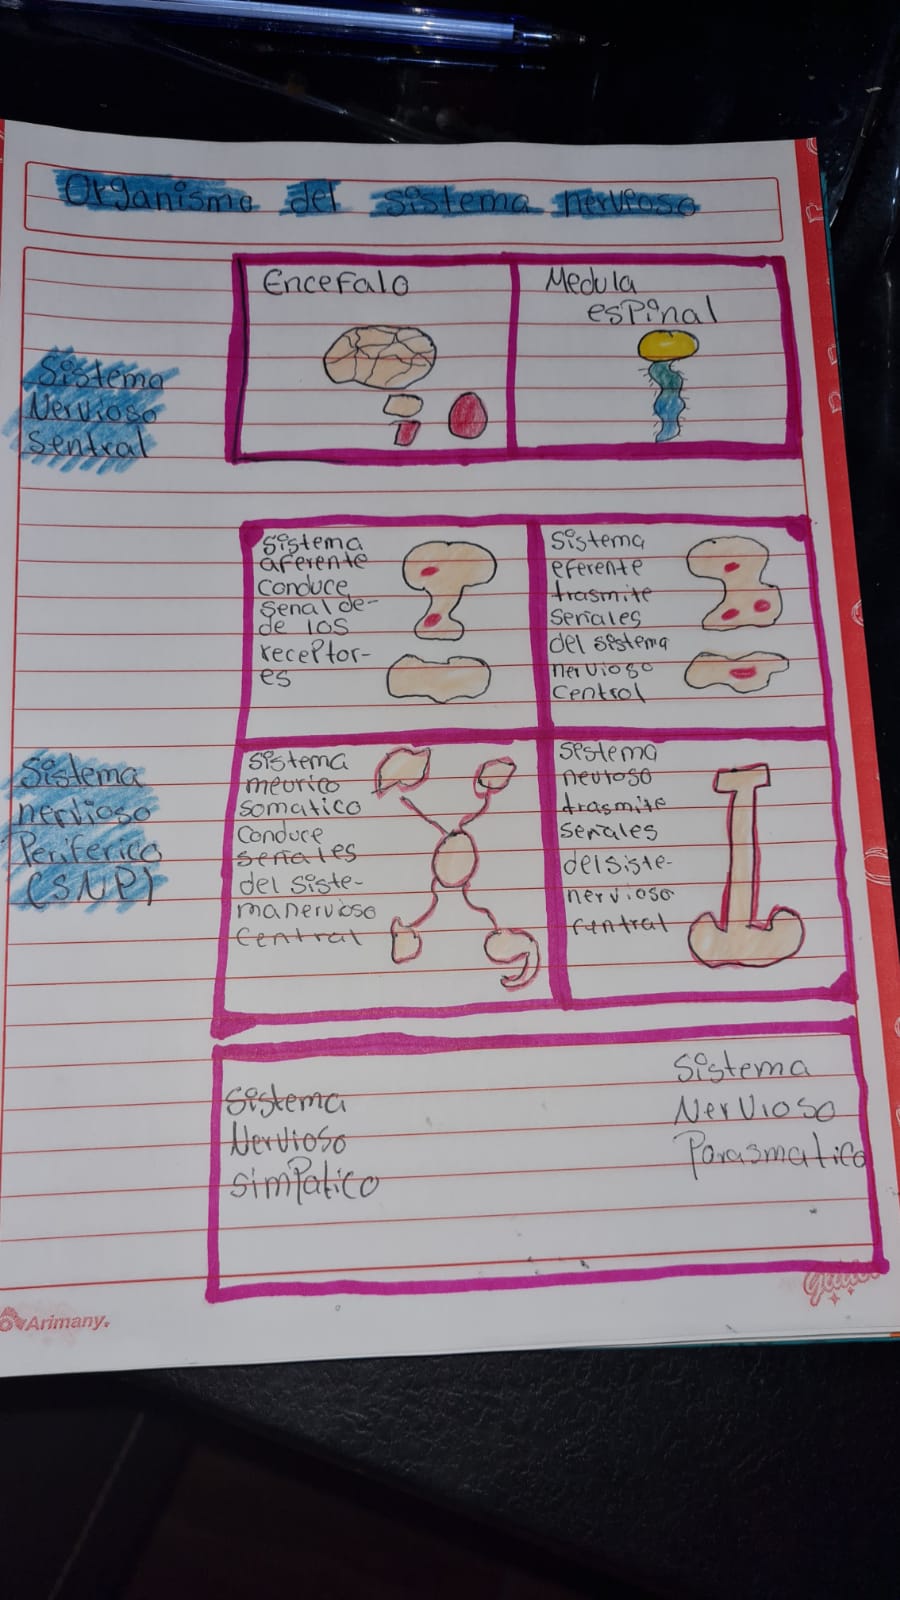 Organismo del sistema nervioso
Encefalo
Medula
espinal
Sistema
Nervioso
Sentral
Sistema
aferente
Conduce
señal de-
de los
receptor-
es
Sistema
eferente
trasmite
Señales
del sistema
nervioso
Central
Sistema
nervioso
Periferico
(SNP)
Sistema
meurico
somatico
Conduce
señales
del siste-
manervioso
Central
Sistema
neuroso
trasmite
señales
del siste-
nervioso
central
Sistema
Nervioso
simPatico
Sistema
Nervioso
Parasmatico
Arimany.